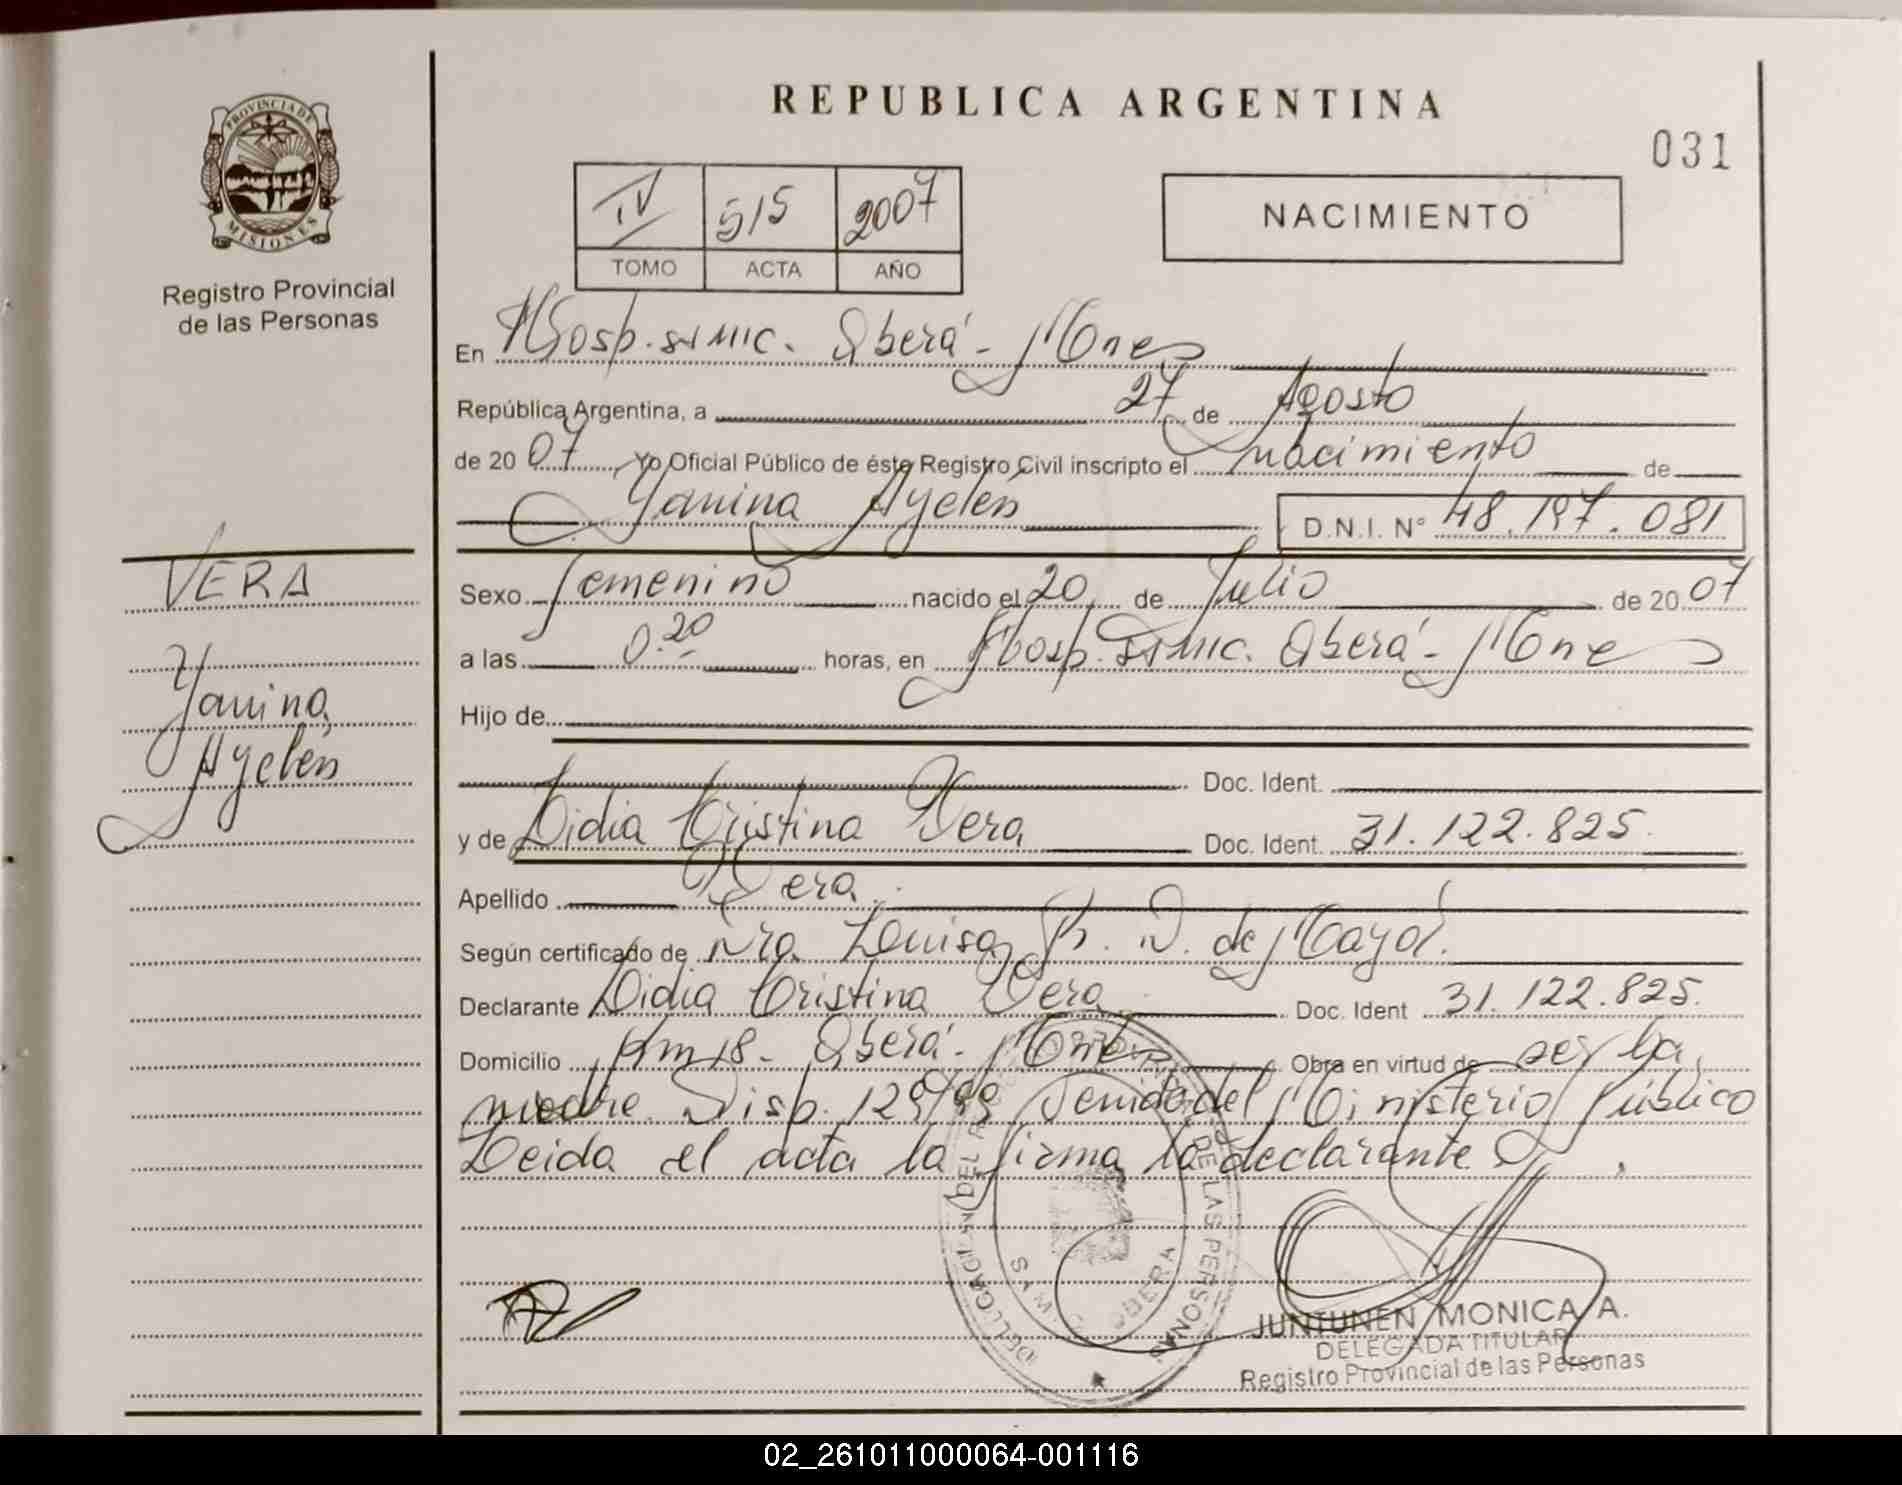 REPUBLICA ARGENTINA
031
PROVINCIA DE
MISIONES
Registro Provincial
de las Personas
IV 515 2007
TOMO ACTA AÑO
NACIMIENTO
En Hosp. SAMIC. Oberá - Mnes
República Argentina, a 27 de Agosto
de 2007 Yo Oficial Público de éste Registro Civil inscripto el nacimiento de
Yanina Ayelén D.N.I. Nº 48.197.081
VERA
Yanina
Ayelén
Sexo femenino nacido el 20 de Julio de 2007
a las 0.20 horas, en Hosp. SAMIC. Oberá - Mnes
Hijo de
Doc. Ident.
y de Lidia Cristina Vera Doc. Ident. 31.122.825.
Apellido Vera
Según certificado de Dra. Luisa de Mayol.
Declarante Lidia Cristina Vera Doc. Ident 31.122.825.
Domicilio Km 18 - Oberá - Mnes Obra en virtud de ser la
madre. Disp. 129/99 Senido del Ministerio Público
Leida el acta la firma la declarante
DELEGACION DEL DE LAS PERSONAS
OBERA
JUNTUNEN MONICA A.
DELEGADA TITULAR
Registro Provincial de las Personas
02_261011000064-001116